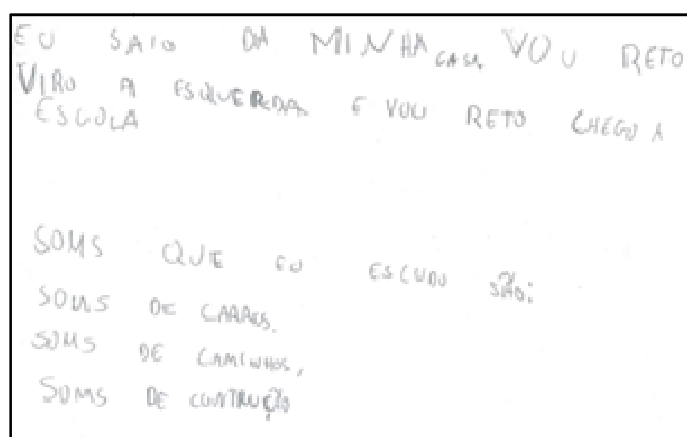 EU SAIO DA MINHA CASA, VOU RETO
VIRO A ESQUERDA, E VOU RETO CHEGO A
ESCOLA
SOMS QUE EU ESCUDO SÃO:
SOMS DE CARROS,
SOMS DE CAMINHOS,
SOMS DE CONTRUÇÃO